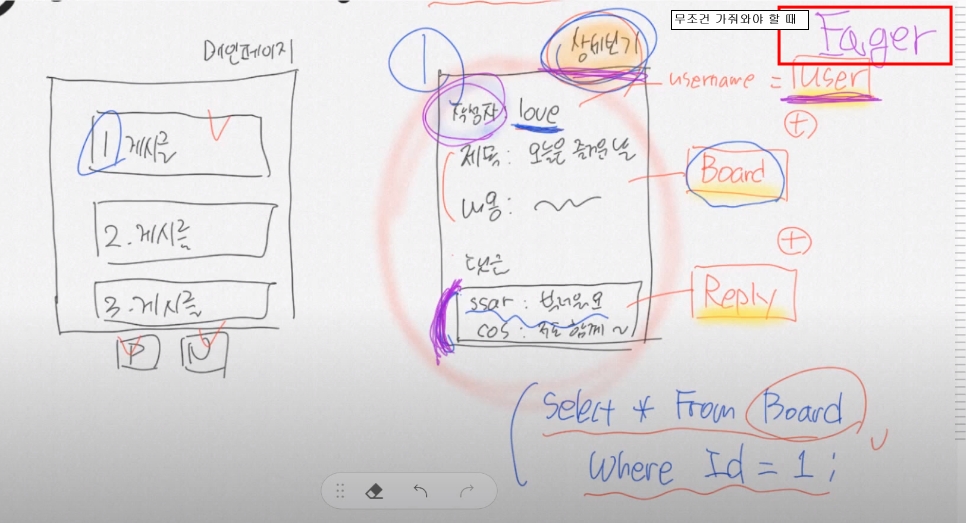 메인페이지
1 게시글
2. 게시글
3. 게시글
P N
1
상세보기
작성자 love
제목 : 오늘은 즐거운 날
내용 :
댓글
ssar : 부러워요
cos : 저도 함께 ~
무조건 가줘와야 할 때
Eager
username = User
+
Board
+
Reply
Select * From Board
Where Id = 1 ;